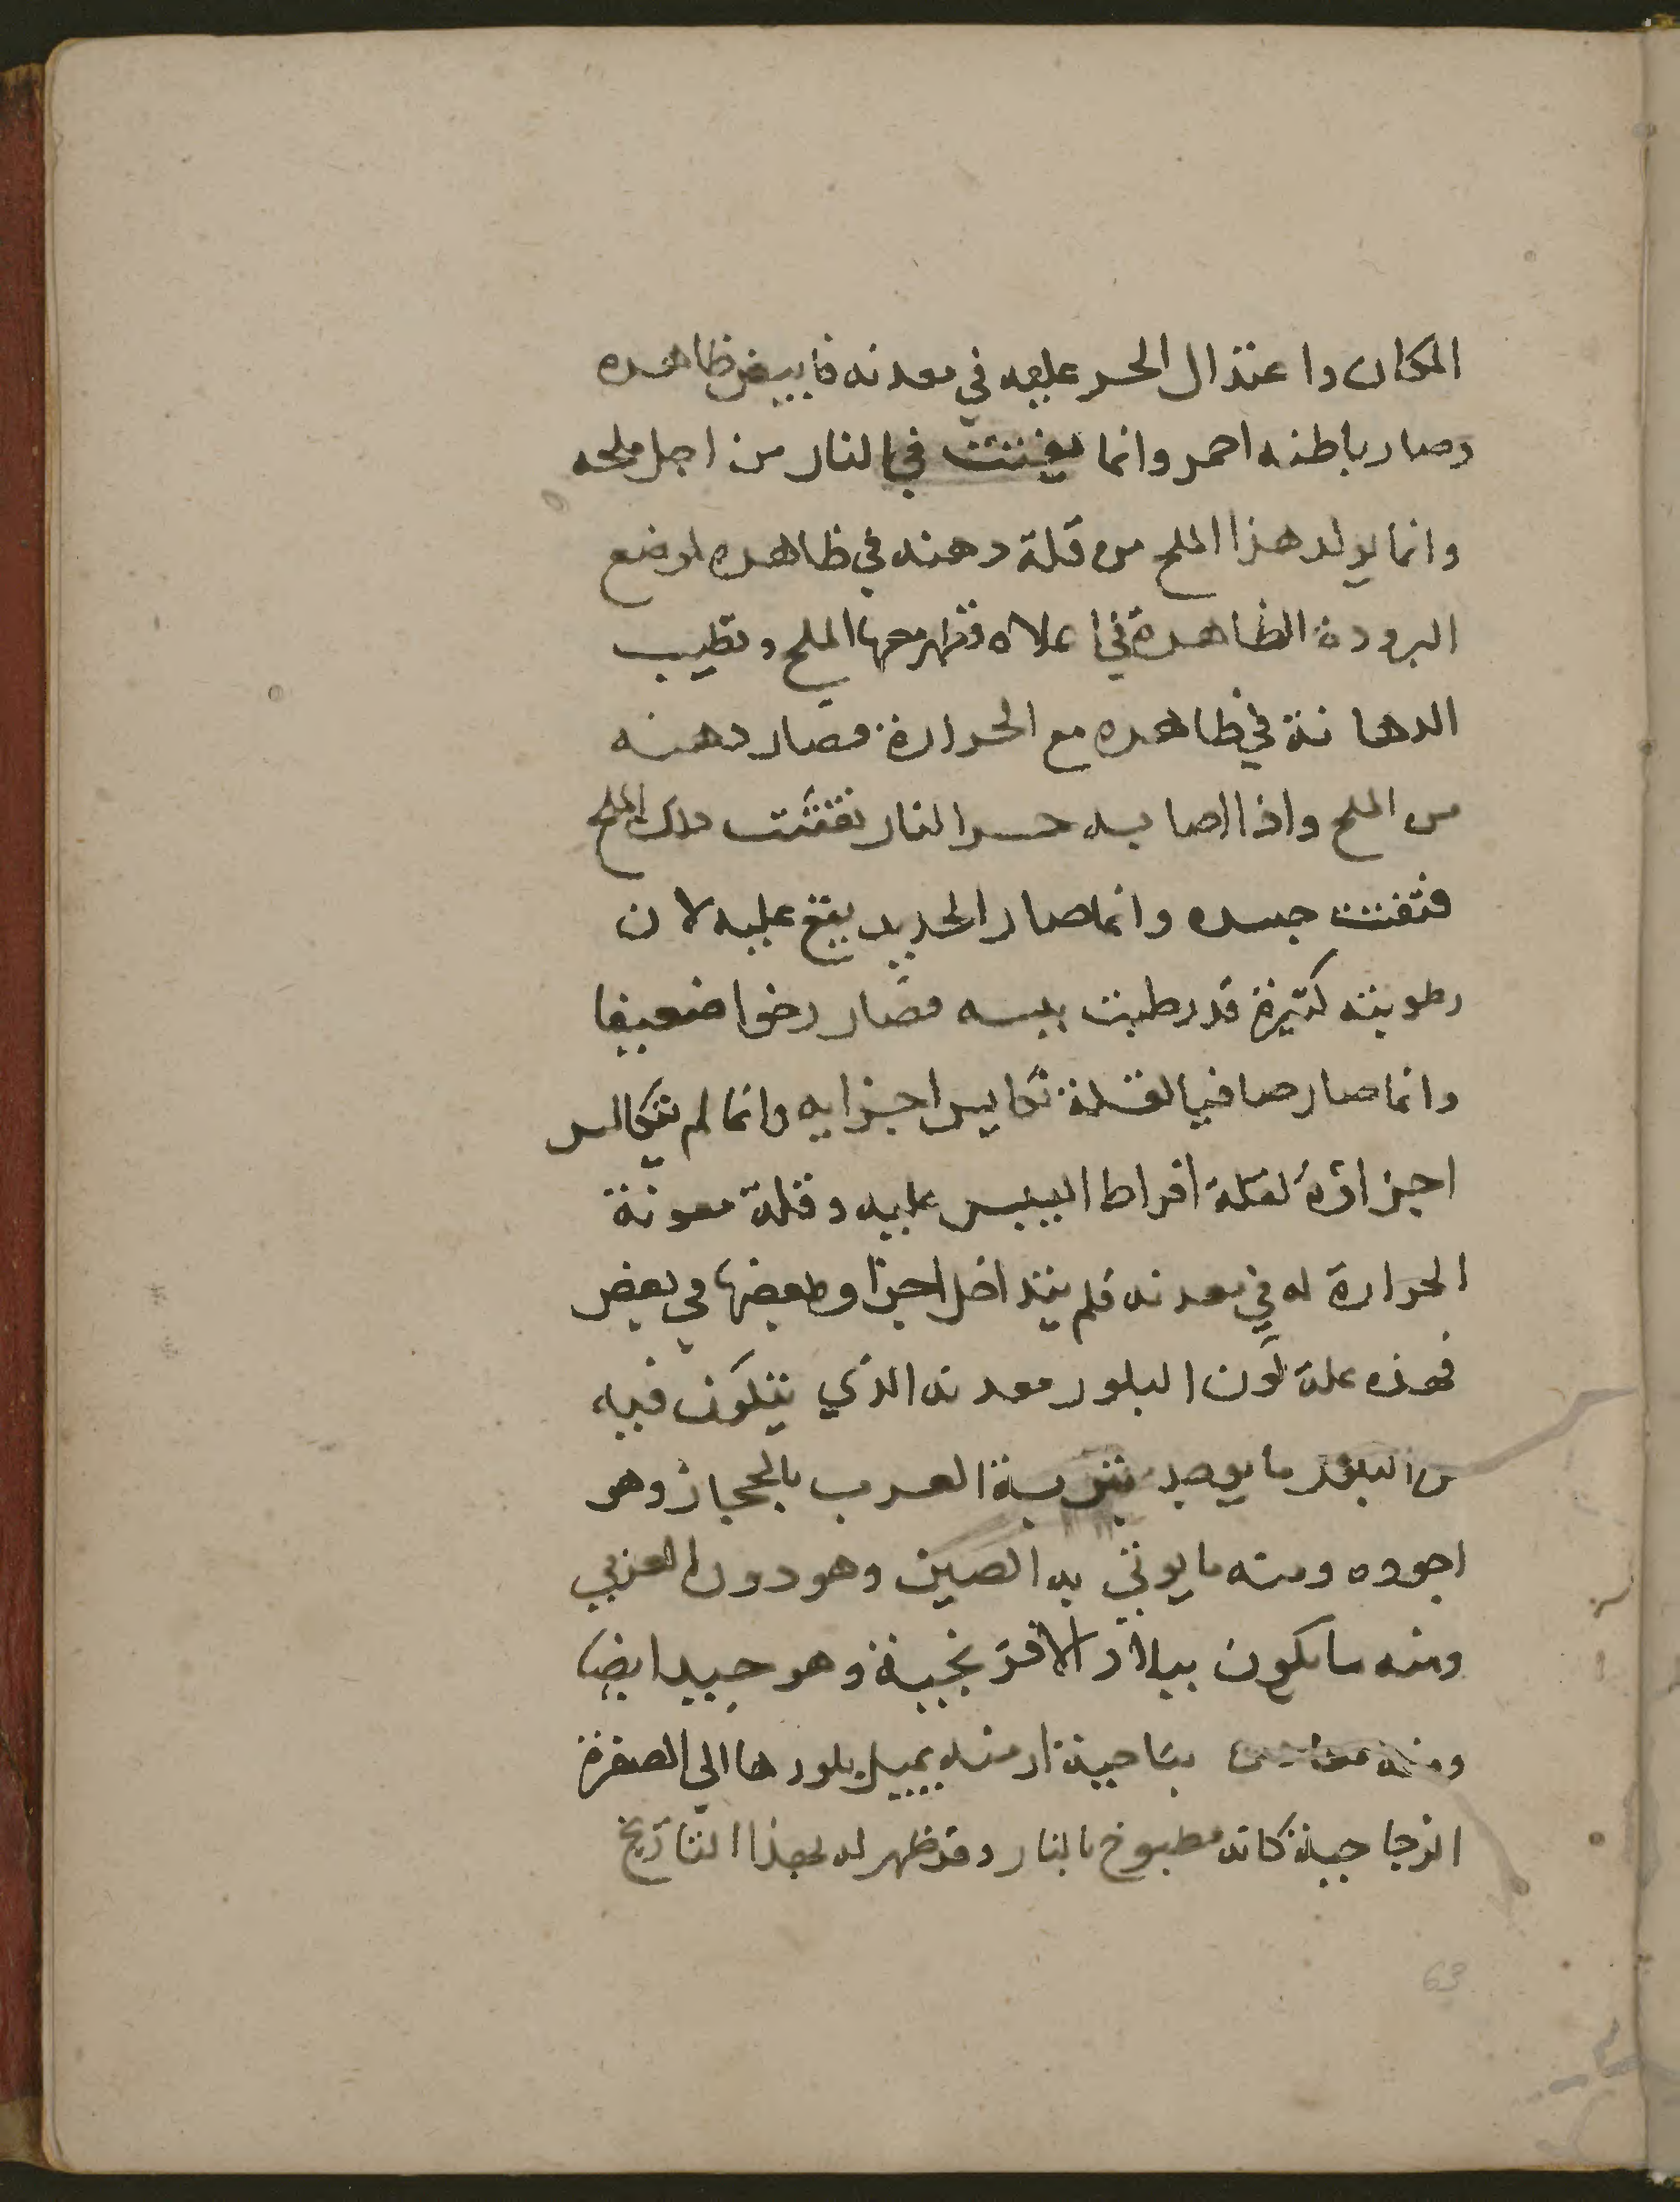 المكان واعتدال الحر عليه في معدنه فابيض ظاهره
وصار باطنه احمر وانما يفتت في النار من اجل ملحه
وانما يولد هذا الملح من قلة دهنه في ظاهره لموضع
البرودة الظاهرة في اعلاه فظهر معها الملح وتطيب
الدهانة في ظاهره مع الحرارة فصار دهنه
من الملح واذا اصابه حر النار تفتت ذلك الملح
فتفتت جسده وانما صار الحديد يقع عليه لان
رطوبته كثيرة قد رطبت يبسه فصار رخوا ضعيفا
وانما صار صافيا لقلة تكايس اجزايه وانما لم تتكالس
اجزاؤه لقلة افراط اليبس عليه وقلة معونة
الحرارة له في معدنه فلم يتداخل اجزاوه بعضها في بعض
فهذه علة لون البلور معدنه الذي يتكون فيه
من البلور ما يوجد بتربة العرب بالحجاز وهو
اجوده ومنه ما يوتي به الصين وهو دون العربي
ومنه ما يكون ببلاد الافرنجية وهو جيد ايضا
ومنه بناحية ارمنيه يميل بلورها الي الصفرة
الزجاجية كانه مطبوخ بالنار وقد ظهر له لهذا التاريخ
63